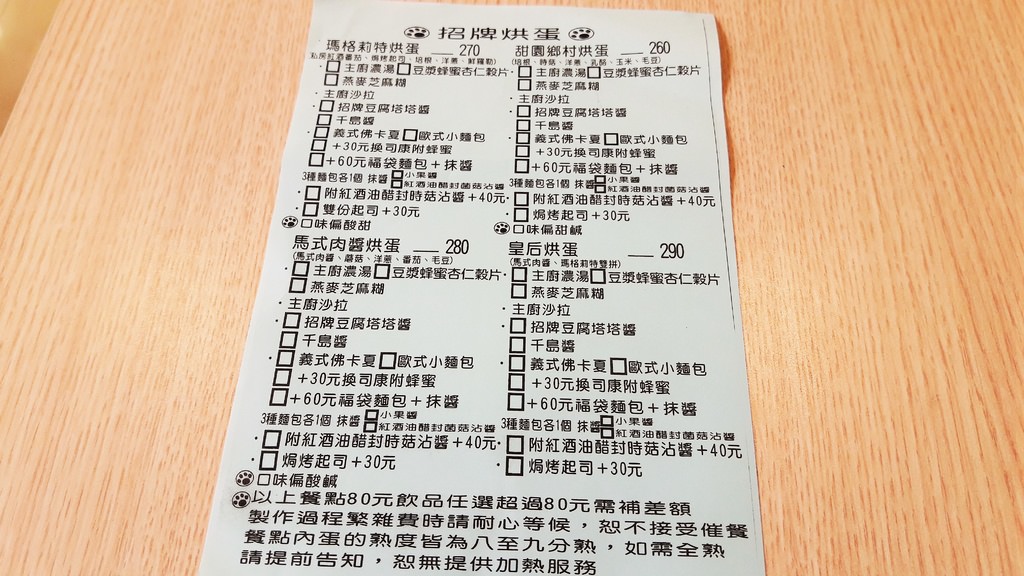 招牌烘蛋
瑪格莉特烘蛋 270
(私房紅酒番茄、焗烤起司、培根、洋蔥、鮮羅勒)
·□主廚濃湯□豆漿蜂蜜杏仁穀片
□燕麥芝麻糊
·主廚沙拉
□招牌豆腐塔塔醬
□千島醬
·□義式佛卡夏□歐式小麵包
□+30元換司康附蜂蜜
□+60元福袋麵包+抹醬
3種麵包各1個 抹醬□小果醬
□紅酒油醋封菌菇沾醬
·□附紅酒油醋封時菇沾醬+40元
·□雙份起司+30元
口味偏酸甜
甜園鄉村烘蛋 260
(培根、時菇、洋蔥、乳酪、玉米、毛豆)
·□主廚濃湯□豆漿蜂蜜杏仁穀片
□燕麥芝麻糊
·主廚沙拉
□招牌豆腐塔塔醬
□千島醬
·□義式佛卡夏□歐式小麵包
□+30元換司康附蜂蜜
□+60元福袋麵包+抹醬
3種麵包各1個 抹醬□小果醬
□紅酒油醋封菌菇沾醬
·□附紅酒油醋封時菇沾醬+40元
·□焗烤起司+30元
口味偏甜鹹
馬式肉醬烘蛋 280
(馬式肉醬、蘑菇、洋蔥、番茄、毛豆)
·□主廚濃湯□豆漿蜂蜜杏仁穀片
□燕麥芝麻糊
·主廚沙拉
□招牌豆腐塔塔醬
□千島醬
·□義式佛卡夏□歐式小麵包
□+30元換司康附蜂蜜
□+60元福袋麵包+抹醬
3種麵包各1個 抹醬□小果醬
□紅酒油醋封菌菇沾醬
·□附紅酒油醋封時菇沾醬+40元
·□焗烤起司+30元
口味偏酸鹹
皇后烘蛋 290
(馬式肉醬、瑪格莉特雙拼)
·□主廚濃湯□豆漿蜂蜜杏仁穀片
□燕麥芝麻糊
·主廚沙拉
□招牌豆腐塔塔醬
□千島醬
·□義式佛卡夏□歐式小麵包
□+30元換司康附蜂蜜
□+60元福袋麵包+抹醬
3種麵包各1個 抹醬□小果醬
□紅酒油醋封菌菇沾醬
·□附紅酒油醋封時菇沾醬+40元
·□焗烤起司+30元
以上餐點80元飲品任選超過80元需補差額
製作過程繁雜費時請耐心等候，恕不接受催餐
餐點內蛋的熟度皆為八至九分熟，如需全熟
請提前告知，恕無提供加熱服務